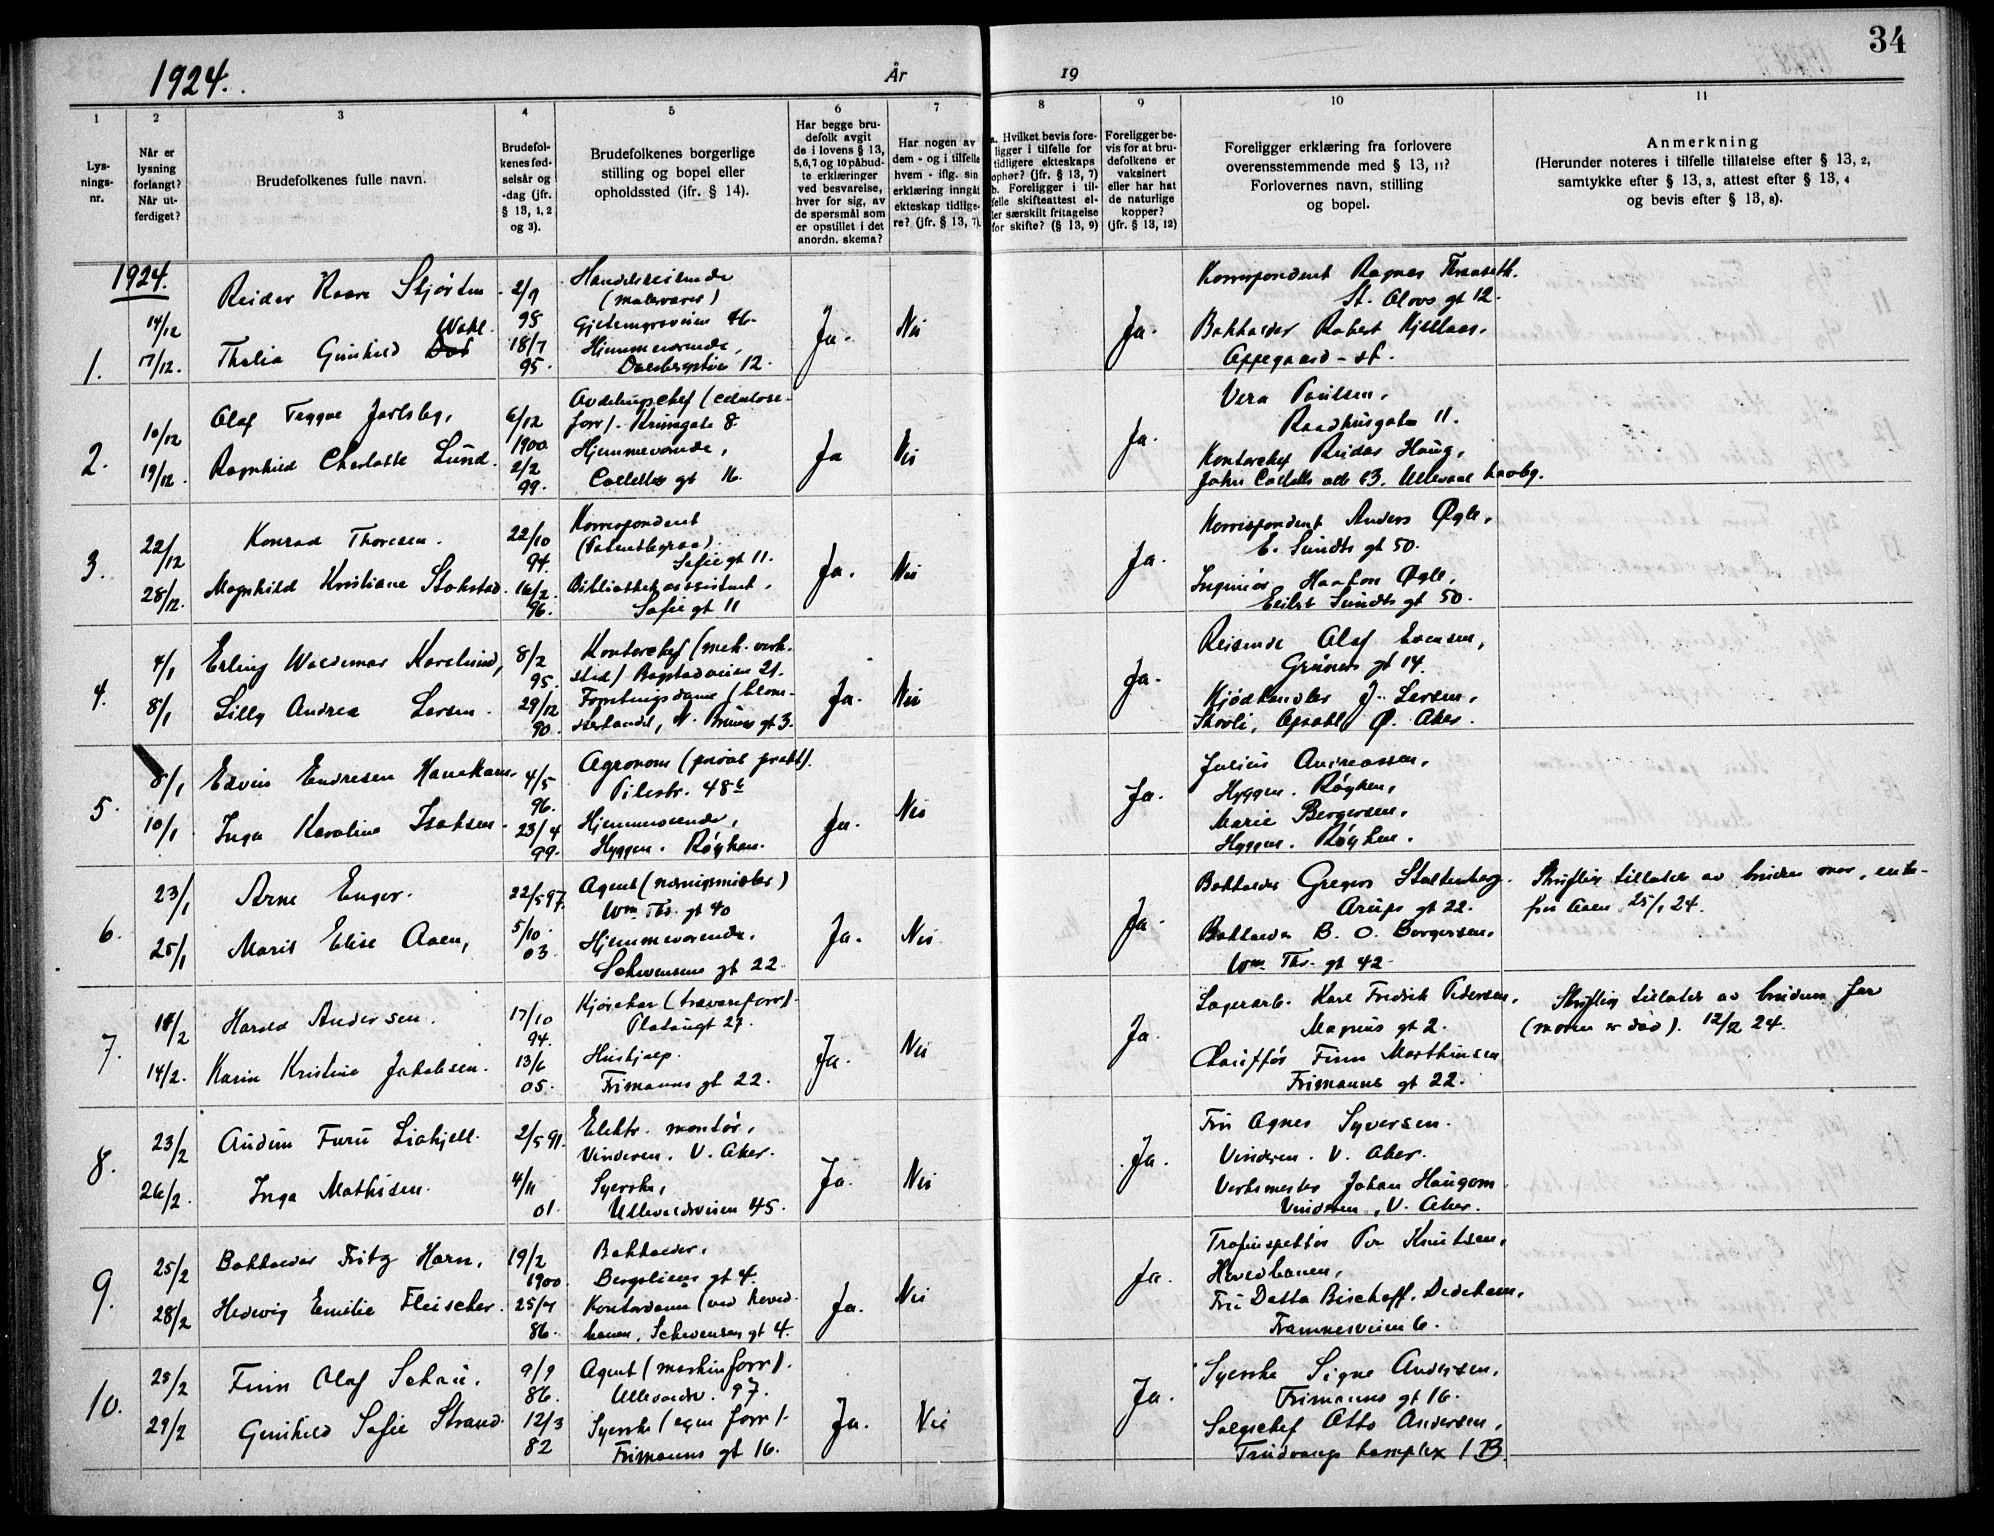 34
1924.
År
19
1
2
3
4
5
6
7
8
9
10
11
Lys-
nings-
nr.
Når er
lysning
forlangt?
Når ut-
ferdiget?
Brudefolkenes fulle navn.
Brudefol-
kenes fød-
selsår og
-dag (jfr.
§ 13, 1, 2
og 3).
Brudefolkenes borgerlige
stilling og bopel eller
opholdssted (ifr. § 14).
Har begge bru-
defolk avgit
de i lovens § 13,
5,6,7 og 10 påbud-
te erklæringer
ved besvarelse,
hver for sig, av
de spørsmål som
er opstillet i det
anordn. skema?
Har nogen av
dem - og i tilfelle
hvem - iflg. sin
erklæring inngått
ekteskap tidlige-
re? (jfr. § 13, 7).
a. Hvilket bevis fore-
ligger i tilfelle for
tidligere ekteskaps
ophør? (jfr. § 13, 7)
b. Foreligger i til-
felle skifteattest el-
ler særskilt fritagelse
for skifte? (§ 13, 9)
Foreligger be-
vis for at bru-
defolkene er
vaksinert
eller har hat
de naturlige
kopper?
(jfr. § 13, 12)
Foreligger erklæring fra forlovere
overensstemmende med § 13, 11?
Forlovernes navn, stilling
og bopel.
Anmerkning
(Herunder noteres i tilfelle tillatelse efter § 13, 2,
samtykke efter § 13, 3, attest efter § 13, 4
og bevis efter § 13, 8).
1924.
1.
14/12
17/12.
Reidar Kaare
Thalia Gunhild Wahl.
2/9
98
18/7
95.
Handelsreisende
(malevarer)
46.
Hjemmeværende,
12.
Ja.
Nei
Ja.
Korrespondent Ragnar
St. Olavs gt 12.
Bokholder Robert
Oppegaard - st.
2.
10/12
19/12.
Olaf Trygve Jarlsby,
Ragnhild Charlotte Lund.
6/12
1900.
2/2
99.
Avdelingschef (cellulose-
forr). Krumgate 8.
Hjemmeværende,
Colletts gt 16.
Ja
Nei
Ja.
Vera Paulsen,
Raadhusgaten 11.
Kontorchef Reidar Haug,
John Colletts alle 63. Ullevaal havby.
3.
22/12
28/12.
Konrad Thoresen.
Magnhild Kristiane Stokstad.
22/10
94.
16/2.
96.
Korrespondent
Sofie gt 11.
Bibliotekassistent,
Sofie gt 11
Ja.
Nei
Ja.
Korrespondent Anders Øgle,
E. Sundts gt 50.
Ingeniør Haakon Øgle,
Eilert Sundts gt 50.
4.
4/1
8/1
Erling Waldemar
Lilly Andrea Larsen.
8/2
95.
29/12
90.
Kontorchef (mek. verk-
sted) Bogstadveien 21.
Forretningsdame (blom-
sterhandel, N. Bruns gt 3.
Ja.
Nei
Ja.
Reisende Olaf Evensen,
Grüners gt 14.
Kjødhandler J. Larsen,
Skovli, Ø. Aker.
5.
8/1
10/1
Edvin Endresen
Inga Karoline Isaksen.
4/5
96.
23/4
99.
Agronom (privat prakt).
Pilestr. 48b
Hjemmeværende,
Hyggen. Røyken.
Ja.
Nei
Ja.
Julius Andreassen,
Hyggen. Røyken,
Marie Bergersen,
Hyggen. Røyken.
6.
23/1
25/1
Arne Enger.
Marit Elise Aaen,
22/5 97.
5/10.
03.
Agent (næringsmidler)
Wm. Thr. gt 40
Hjemmeværende.
Schwensens gt 22.
Ja.
Nei
Ja.
Bokholder Gregers Stoltenberg.
Arups gt 22.
Bokholder B. O. Borgersen,
Wm. Thr. gt 42.
Skriftlig tillatelse av brudens mor, enke-
fru Aaen 25/1 24.
7.
14/2.
Harald Andersen.
Karin Kristine Jakobsen.
17/10
94.
13/6
05.
Kjørekar (trævareforr).
Platougt 27.
Hushjælp.
Frimanns gt 22.
Ja.
Nei
Ja.
Lagerarb. Karl Fredrik Pedersen,
Magnus gt 2.
Chauffør Finn Marthinsen
Frimanns gt 22.
Skriftlig tillatelse av brudens far
(moren er død). 12/2 24.
8.
23/2
26/2.
Audun Furu Liahjell.
Inga Mathisen.
2/5 91.
4/11
01.
Elektr. montør,
Vinderen. V. Aker.
Syerske,
Ullevaalsveien 45.
Ja.
Nei
Ja.
Fru Agnes Syversen.
Vinderen. V. Aker.
Verksmester Johan Haugom
Vinderen, V. Aker.
9.
25/2
28/2
Bokholder Fritz Horn,
Hedwig Emilie Fleischer.
19/2
1900.
25/4
86.
Bokholder,
Bergsliens gt 4.
Kontordame (ved hoved-
banen, Schwensens gt 4.
Ja.
Nei
Ja.
Trafinspektør Per Knutsen,
Hovedbanen,
Fru Datta Bischoff. Dedekam,
Framnesveien 6.
10.
25/2
29/2
Finn Olaf
Gunhild Sofie Strand
9/9
86.
12/3
82
Agent (maskinforr).
Ullevaalsv. 97.
Syerske (egen forr).
Frimanns gt 16.
Ja.
Nei
Ja.
Syerske Signe Andersen,
Frimanns gt 16.
Salgschef Otto Andersen,
Trudvangs komplex 1 B.